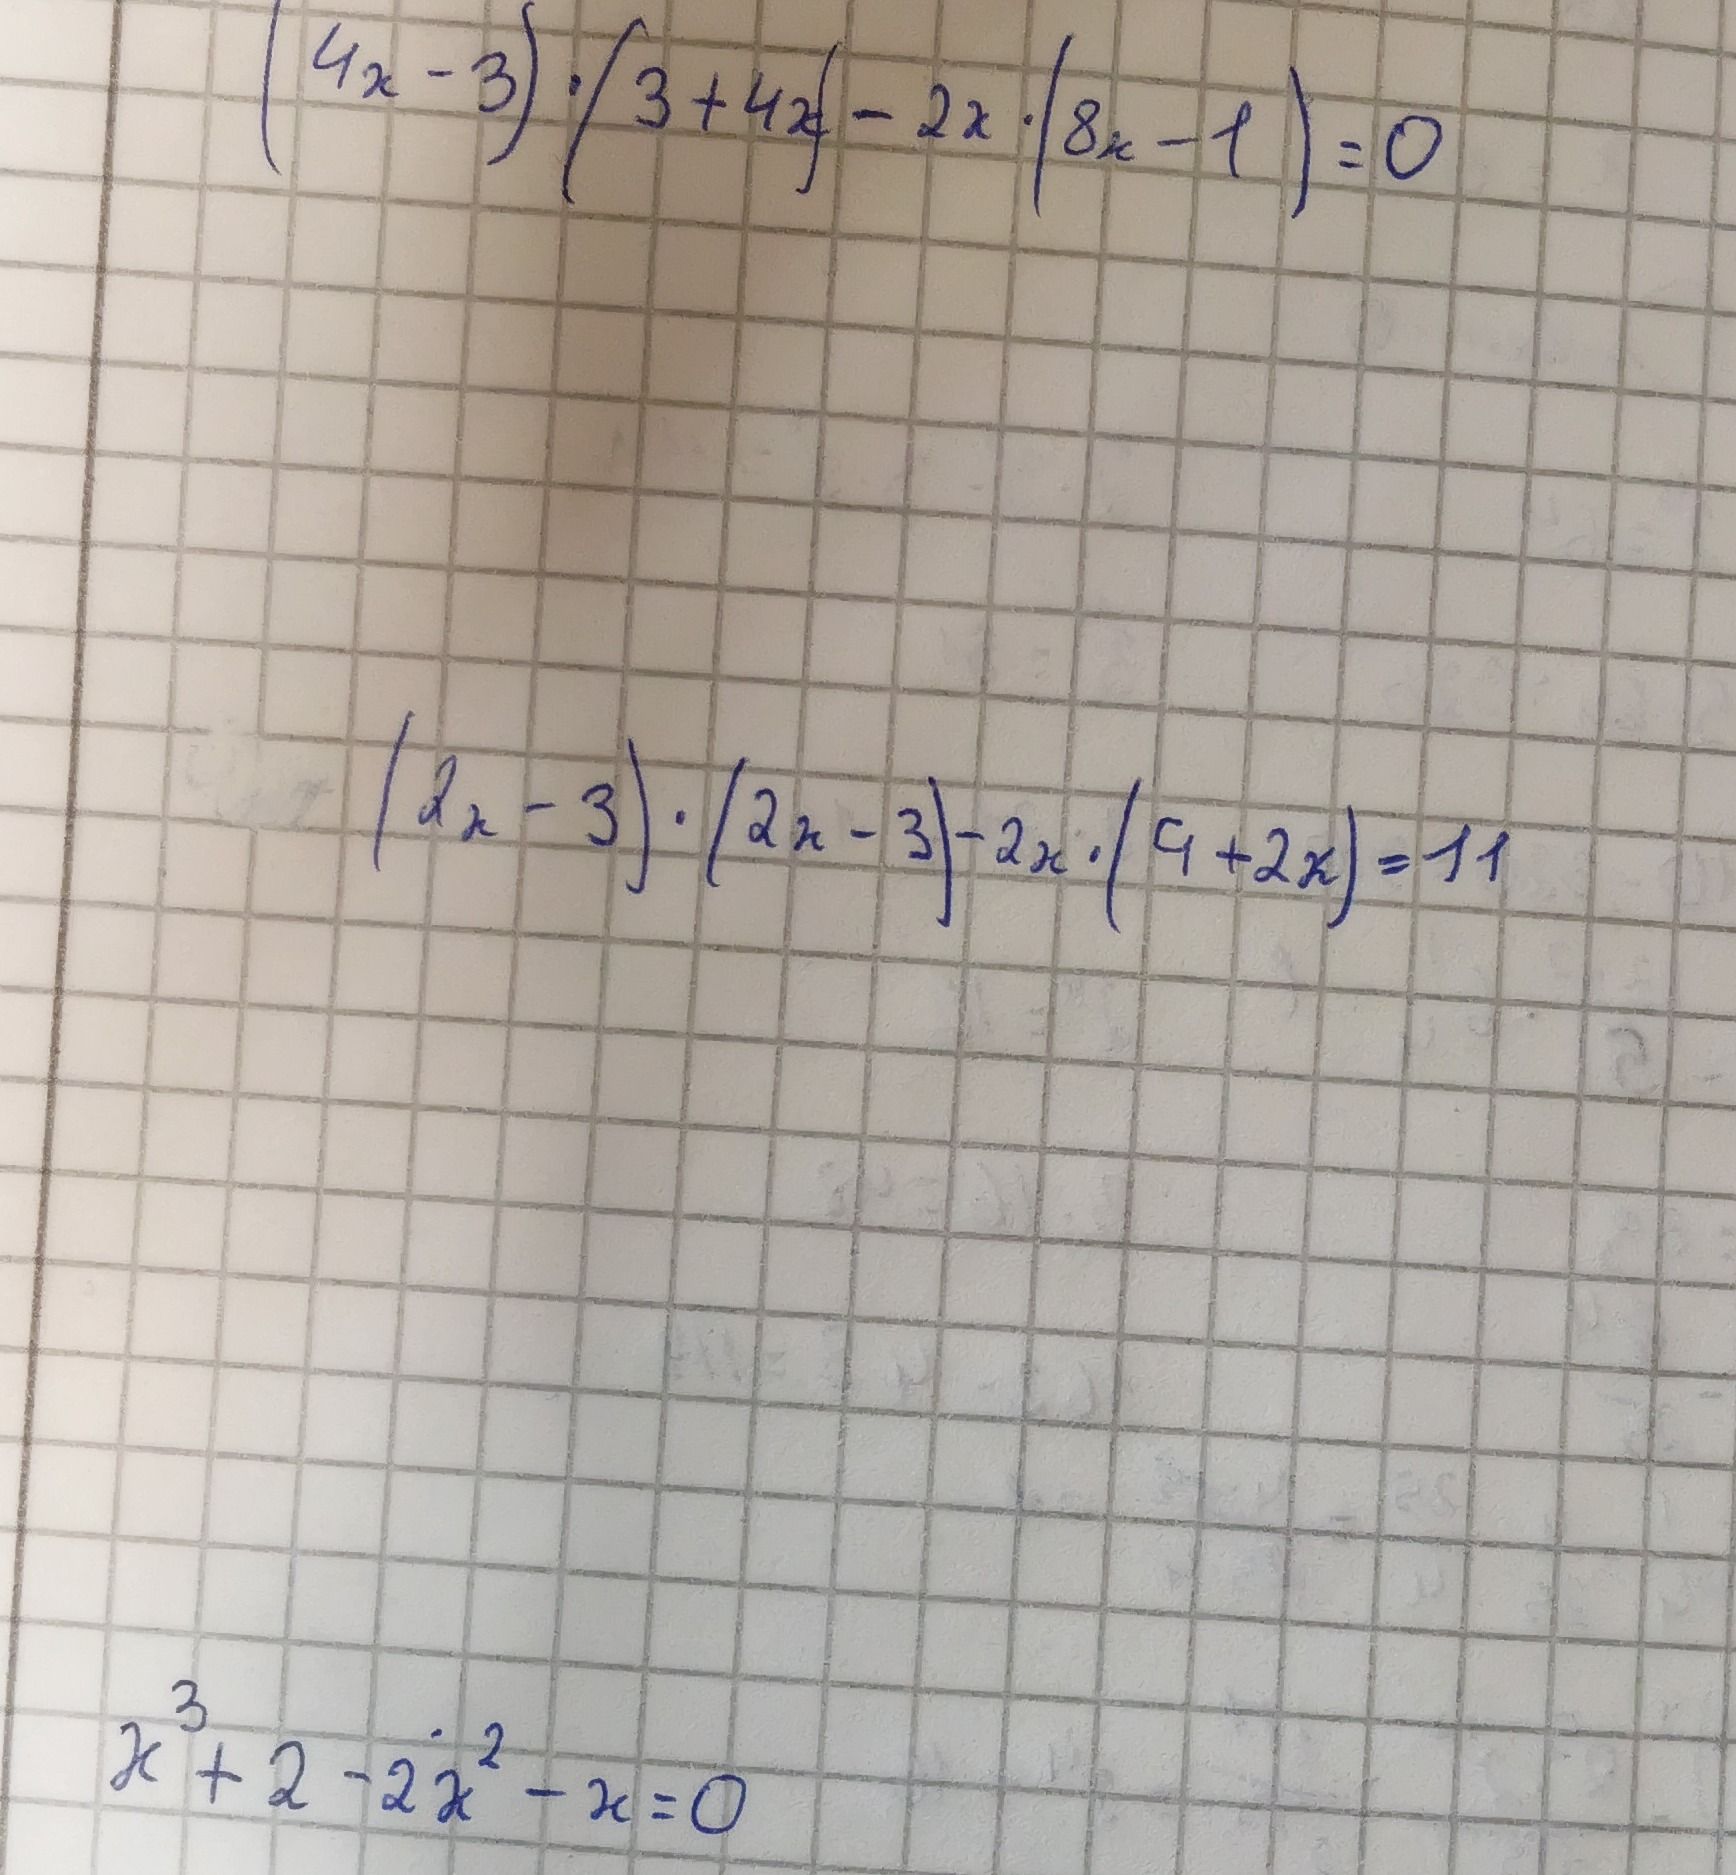 (4x - 3) · (3 + 4x) - 2x · (8x - 1) = 0
(2x - 3) · (2x - 3) - 2x · (4 + 2x) = 11
x³ + 2 - 2x² - x = 0